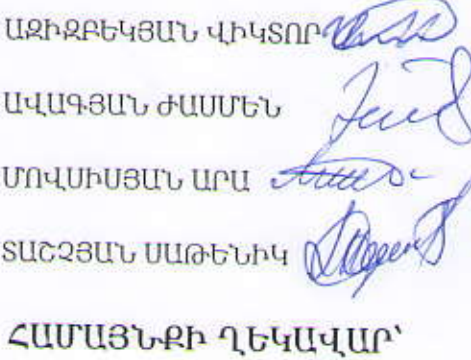 ԱԶԻԶԲԵԿՅԱՆ ՎԻԿՏՈՐ
ԱՎԱԳՅԱՆ ԺԱՍՄԵՆ
ՄՈՎՍԻՍՅԱՆ ԱՐԱ
ՏԱՇՉՅԱՆ ՍԱԹԵՆԻԿ
ՀԱՄԱՅՆՔԻ ՂԵԿԱՎԱՐ՝